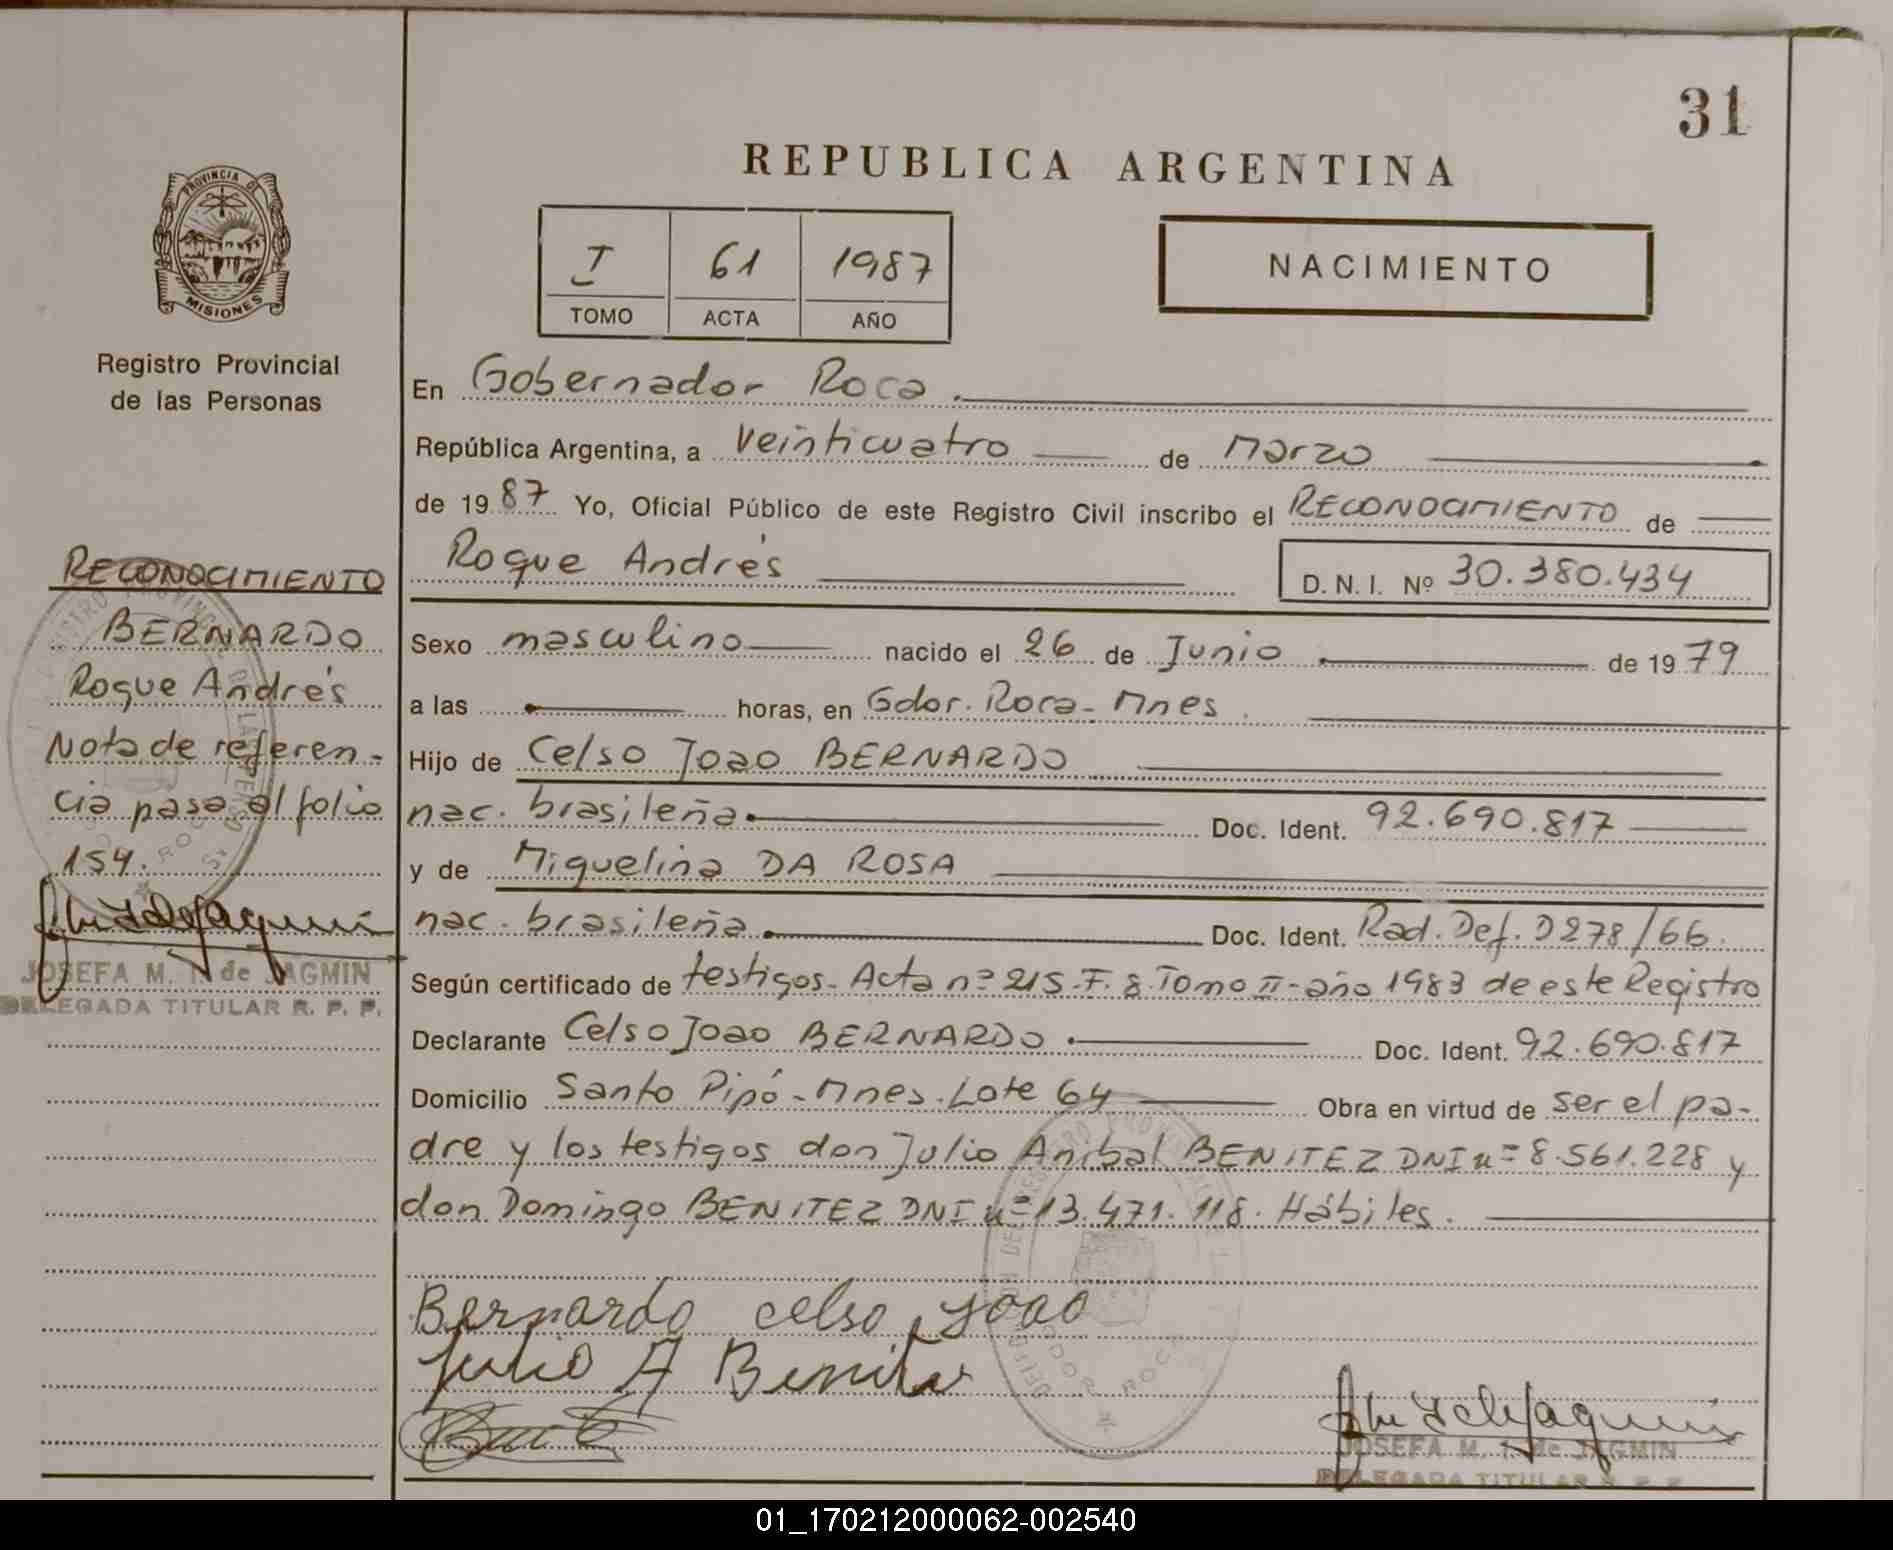 31
REPUBLICA ARGENTINA
PROVINCIA DE
MISIONES
Registro Provincial
de las Personas
I 61 1987
TOMO ACTA AÑO
NACIMIENTO
En Gobernador Roca
República Argentina, a veinticuatro de Marzo
de 1987 Yo, Oficial Público de este Registro Civil inscribo el RECONOCIMIENTO de
Roque Andrés D.N.I. Nº 30.380.434
Sexo masculino nacido el 26 de Junio de 1979
a las horas, en Gdor. Roca - Mnes.
Hijo de Celso Joao BERNARDO
nac. brasileña Doc. Ident. 92.690.817
y de Miguelina DA ROSA
nac. brasileña Doc. Ident. Rad. Def. D278/66.
Según certificado de testigos - Acta nº 215 - F. 8 - Tomo II - año 1983 de este Registro
Declarante Celso Joao BERNARDO Doc. Ident. 92.690.817
Domicilio Santo Pipó - Mnes. Lote 64 Obra en virtud de ser el pa-
dre y los testigos don Julio Anibal BENITEZ DNI nº 8.561.228 y
don Domingo BENITEZ DNI nº 13.471.118. Hábiles.
Bernardo celso Joao
Julio A Benitez
JOSEFA M. de JAGMIN
DELEGADA TITULAR
RECONOCIMIENTO
BERNARDO
Roque Andrés
Nota de referen-
cia pasa al folio
154.
JOSEFA M. de JAGMIN
DELEGADA TITULAR R. P. P.
01_170212000062-002540